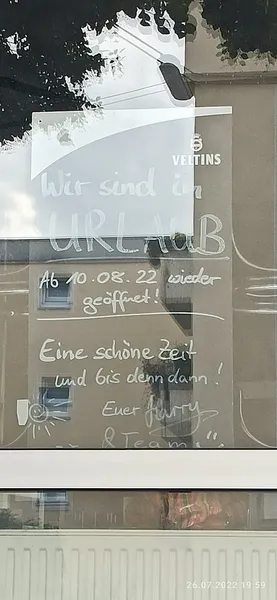 VELTINS
Wir sind in
URLAUB
Ab 10.08.22 wieder
geöffnet!
Eine schöne Zeit
und bis denn dann!
Euer Harry
& Team
26.07.2022 19:59